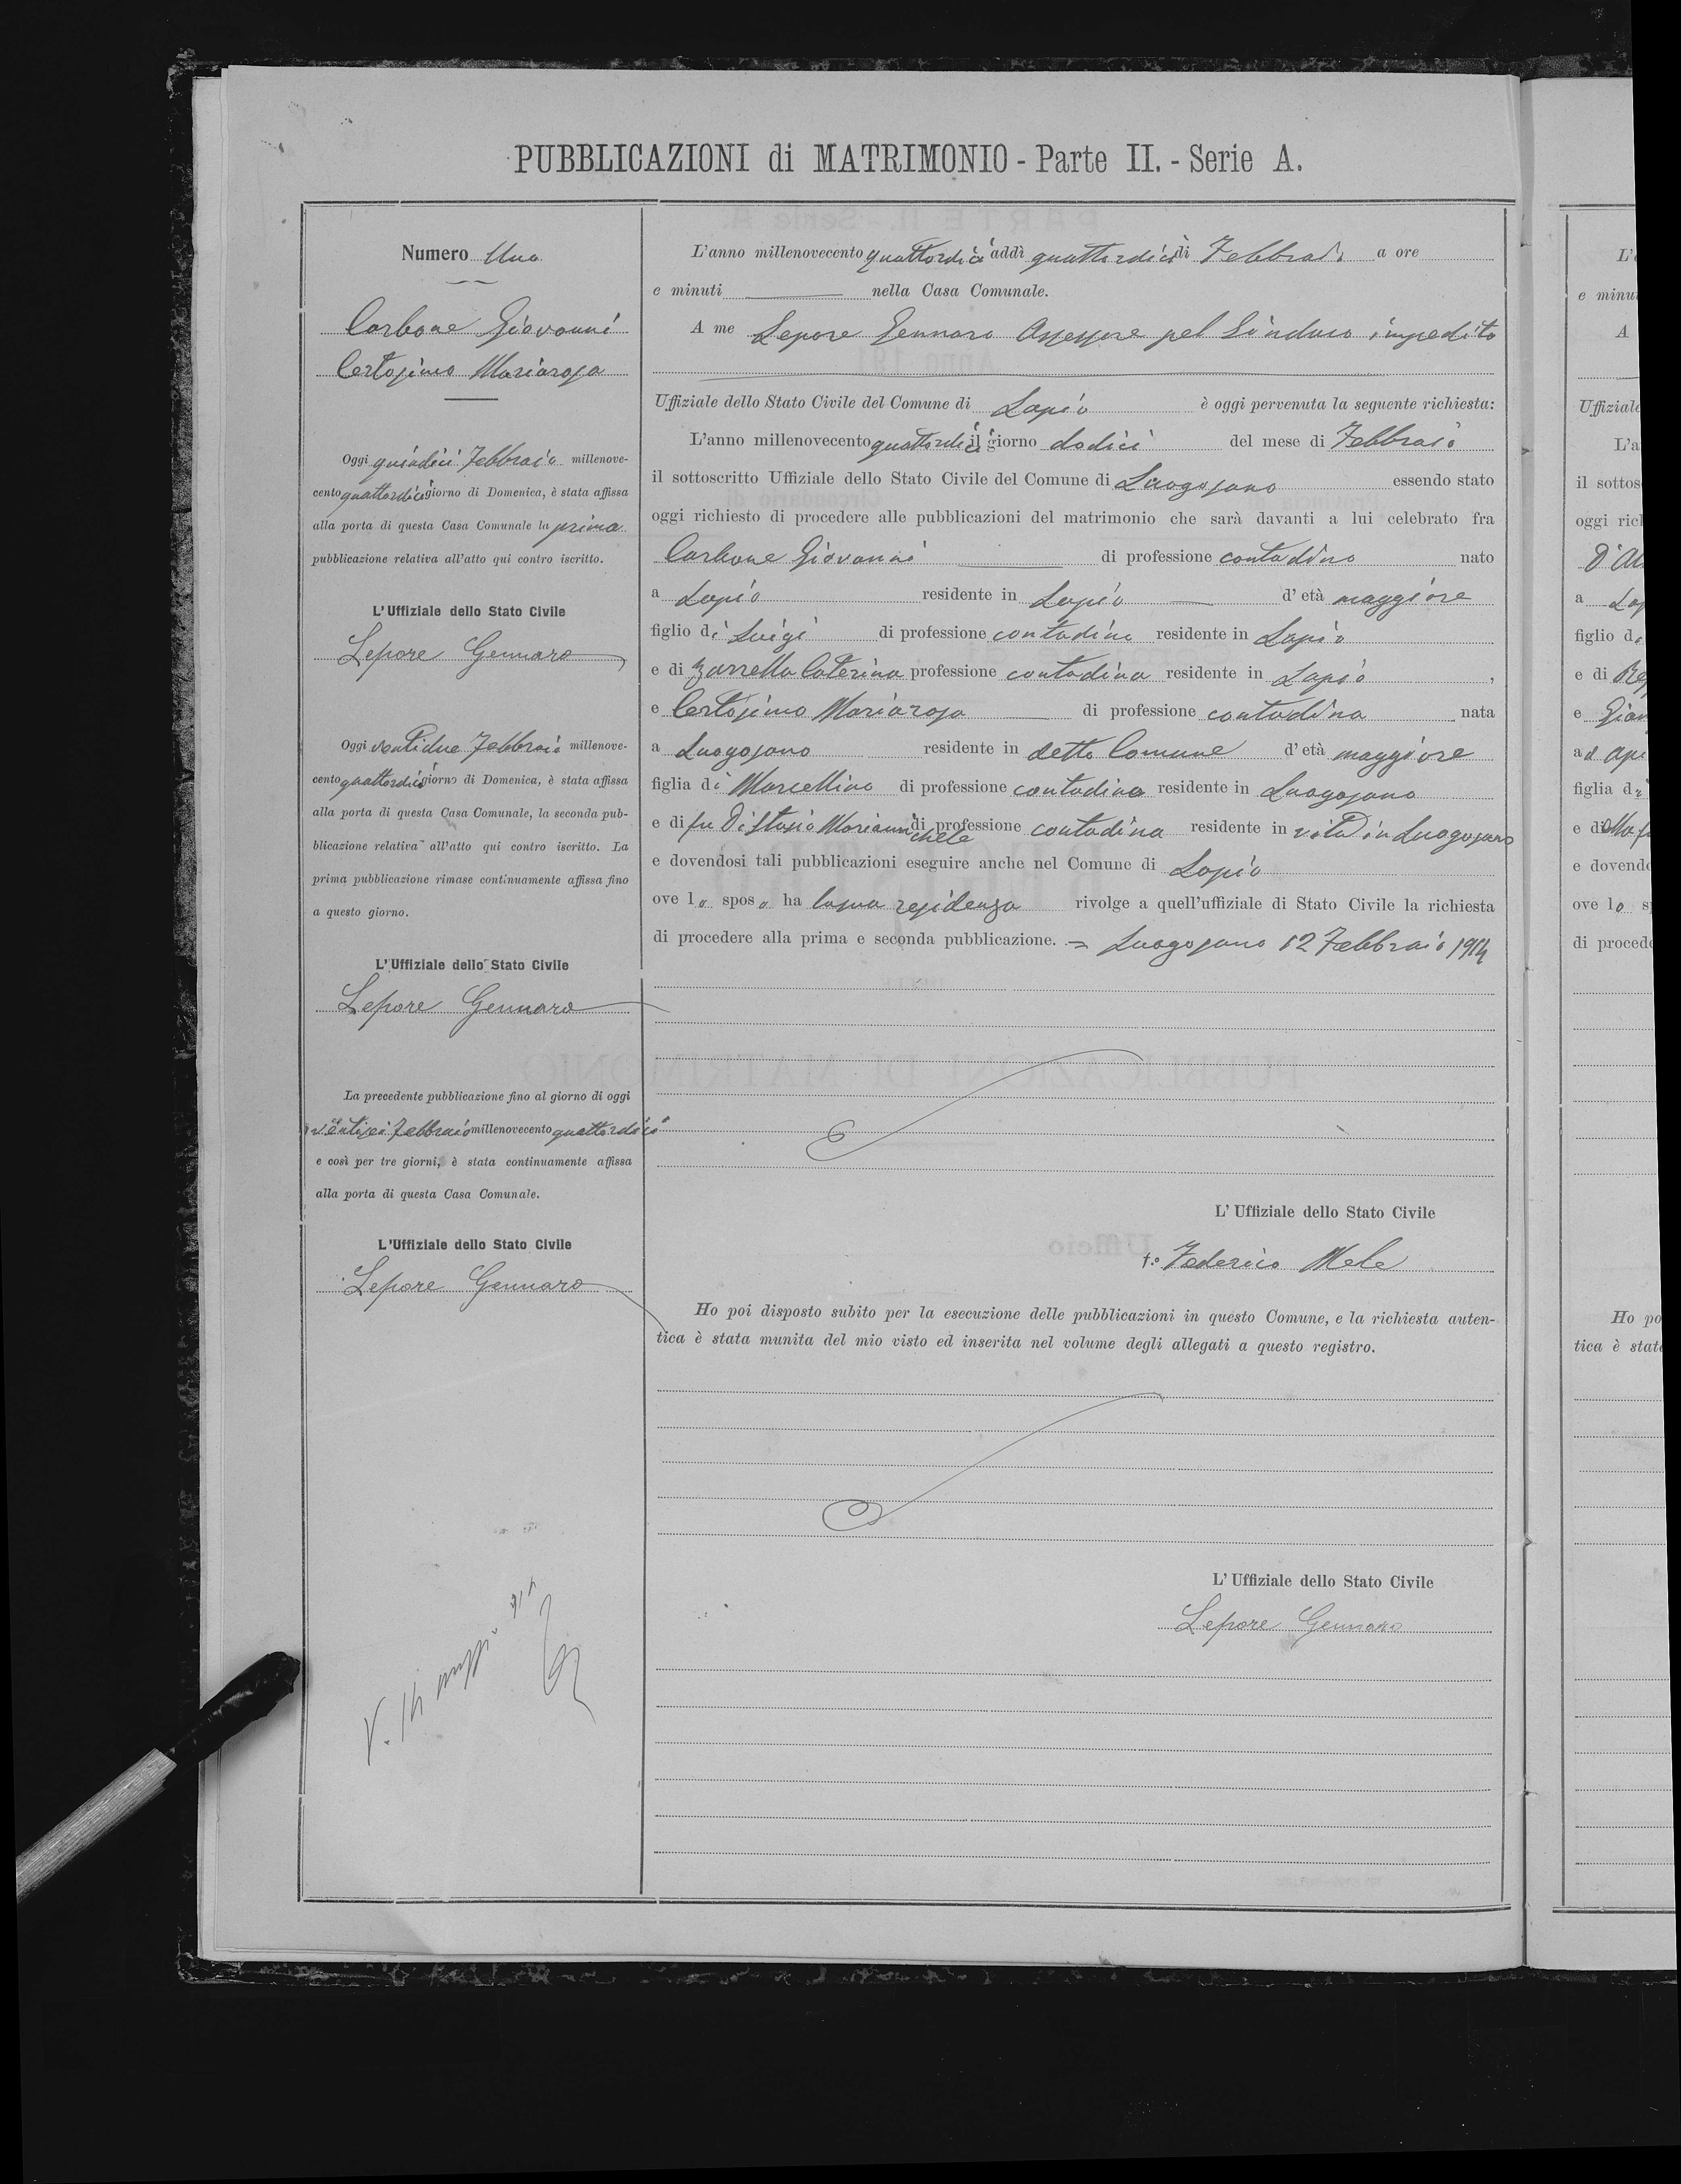 PUBBLICAZIONI di MATRIMONIO - Parte II. - Serie A.
Numero Uno
Carbone Giovanni
Certosimo Mariarosa
Oggi quindici Febbraio millenove-
cento quattordici giorno di Domenica, è stata affissa
alla porta di questa Casa Comunale la prima
pubblicazione relativa all'atto qui contro iscritto.
L'Uffiziale dello Stato Civile
Lepore Gennaro
Oggi ventidue Febbraio millenove-
cento quattordici giorno di Domenica, è stata affissa
alla porta di questa Casa Comunale, la seconda pub-
blicazione relativa all'atto qui contro iscritto. La
prima pubblicazione rimase continuamente affissa fino
a questo giorno.
L'Uffiziale dello Stato Civile
Lepore Gennaro
La precedente pubblicazione fino al giorno di oggi
ventisei Febbraio millenovecento quattordici
e così per tre giorni, è stata continuamente affissa
alla porta di questa Casa Comunale.
L'Uffiziale dello Stato Civile
Lepore Gennaro
V. 14
L'anno millenovecento quattordici addì quattordici di Febbraio a ore
e minuti nella Casa Comunale.
A me Lepore Gennaro Assessore pel Sindaco impedito
Uffiziale dello Stato Civile del Comune di Lapio è oggi pervenuta la seguente richiesta:
L'anno millenovecento quattordici il giorno dodici del mese di Febbraio
il sottoscritto Uffiziale dello Stato Civile del Comune di Luogosano essendo stato
oggi richiesto di procedere alle pubblicazioni del matrimonio che sarà davanti a lui celebrato fra
Carbone Giovanni di professione contadino nato
a Lapio residente in Lapio d'età maggiore
figlio di Luigi di professione contadino residente in Lapio
e di Zarrella Caterina professione contadina residente in Lapio,
e Certosimo Mariarosa di professione contadina nata
a Luogosano residente in detto Comune d'età maggiore
figlia di Marcellino di professione contadino residente in Luogosano
e di fu Distasio Mariannichele di professione contadina residente in vita in Luogosano
e dovendosi tali pubblicazioni eseguire anche nel Comune di Lapio
ove lo sposo ha la sua residenza rivolge a quell'uffiziale di Stato Civile la richiesta
di procedere alla prima e seconda pubblicazione. = Luogosano 12 Febbraio 1914
L'Uffiziale dello Stato Civile
f.o Federico Mele
Ho poi disposto subito per la esecuzione delle pubblicazioni in questo Comune, e la richiesta auten-
tica è stata munita del mio visto ed inserita nel volume degli allegati a questo registro.
L'Uffiziale dello Stato Civile
Lepore Gennaro
e minu
A
Uffiziale
L'a
il sottos
oggi rich
a Lap
figlio di
e di
e Gian
ad
figlia di
e di
e dovend
ove lo s
di procede
Ho po
tica è stat